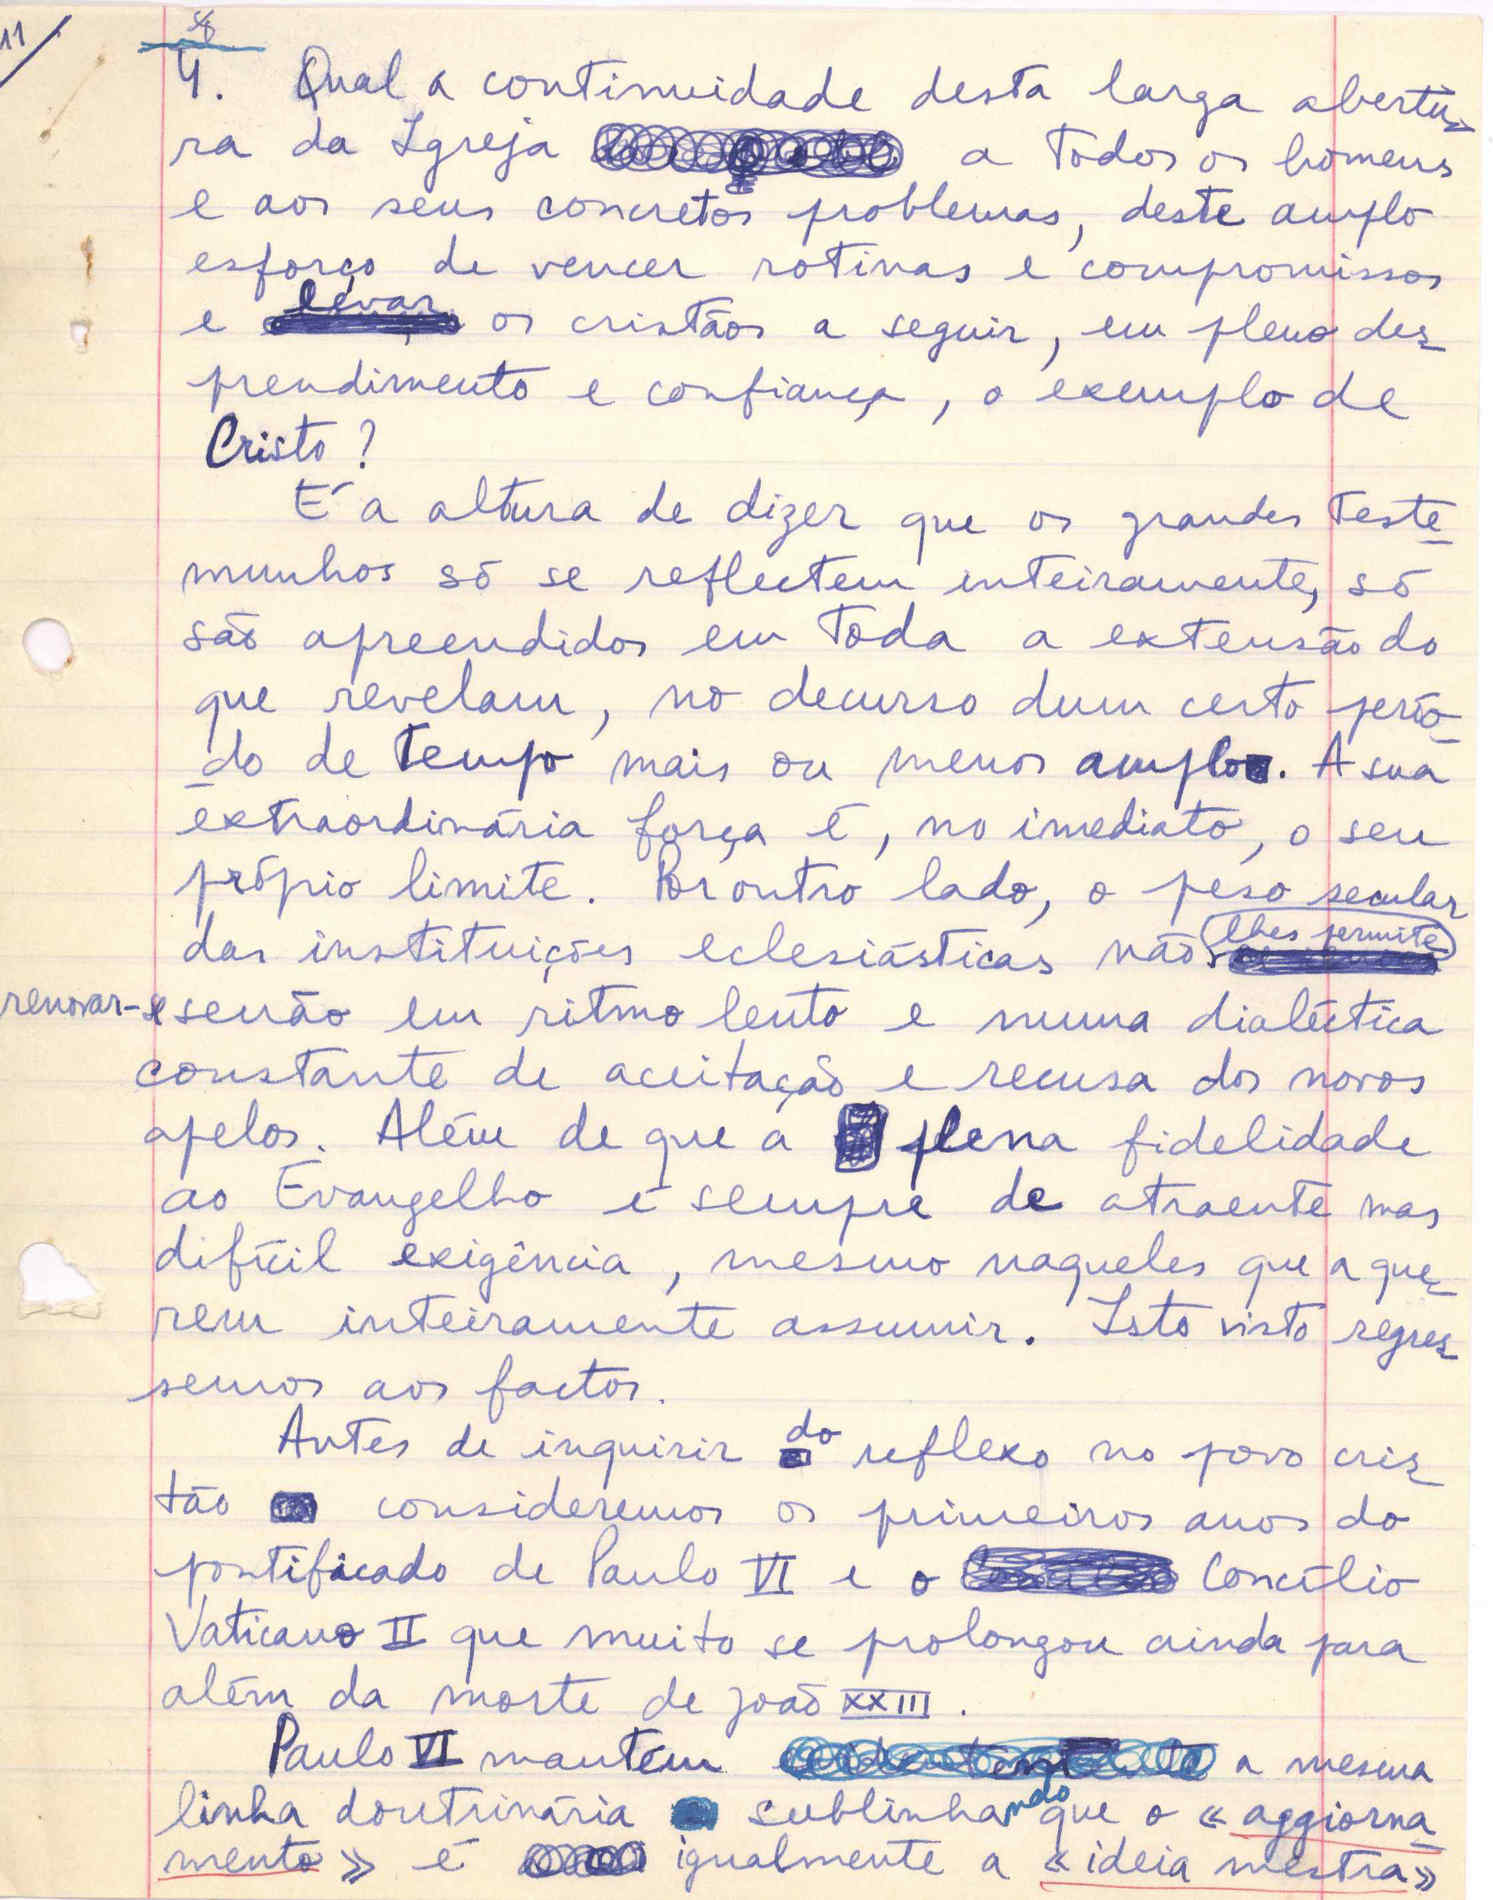 11
4. Qual a continuidade desta larga abertu-
ra da Igreja a todos os homens
e aos seus concretos problemas, deste amplo
esforço de vencer rotinas e compromissos
e levar os cristãos a seguir, em pleno des-
prendimento e confiança, o exemplo de
Cristo?
É a altura de dizer que os grandes teste-
munhos só se reflectem inteiramente, só
são apreendidos em toda a extensão do
que revelam, no decurso dum certo perío-
do de tempo mais ou menos amplo. A sua
extraordinária força é, no imediato, o seu
própio limite. Por outro lado, o peso secular
das instituições eclesiásticas não lhes permite
renovar-se senão em ritmo lento e numa dialéctica
constante de aceitação e recusa dos novos
apelos. Além de que a plena fidelidade
ao Evangelho é sempre de atraente mas
difícil exigência, mesmo naqueles que a que-
rem inteiramente assumir. Isto visto regres-
semos aos factos.
Antes de inquirir do reflexo no povo cris-
tão consideremos os primeiros anos do
pontificado de Paulo VI e o Concílio
Vaticano II que muito se prolongou ainda para
além da morte de João XXIII.
Paulo VI mantém a mesma
linha doutrinária sublinhando que o «aggiorna-
mento» é igualmente a «ideia mestra»